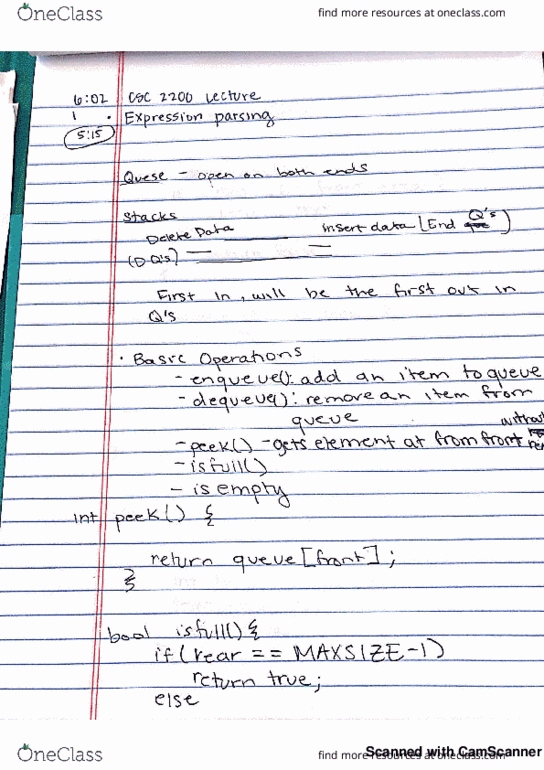 OneClass
find more resources at oneclass.com
6:02 CSC 2200 Lecture
1 • Expression parsing
5:15
Quese - open on both ends
Stacks
Delete Data Insert data [End Q's)
(D-Q's]
First in, will be the first out in
Q's
• Basic Operations
- enqueue(): add an item to queue
- dequeue(): remove an item from
queue
without
- peek() - gets element at from front
- isfull()
- is empty
int peek() {
return queue[front];
}
bool isfull() {
if (rear == MAXSIZE-1)
return true;
else
OneClass
find more resources at oneclass.com
Scanned with CamScanner